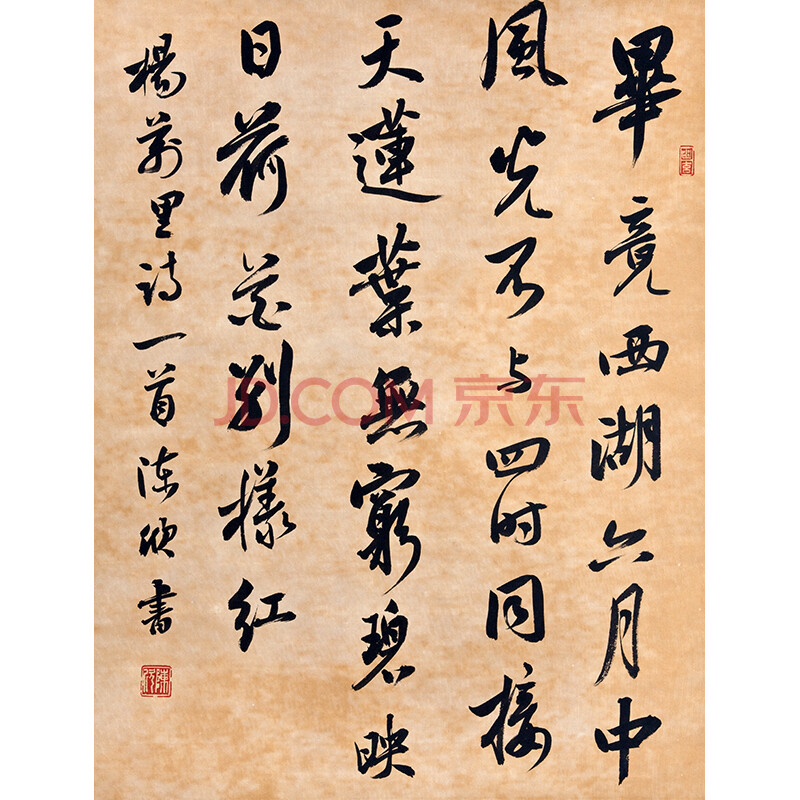 畢竟西湖六月中
風光不与四时同接
天蓮葉無窮碧映
日荷花别樣红
楊萬里诗一首陈欣書
JD.COM 京东